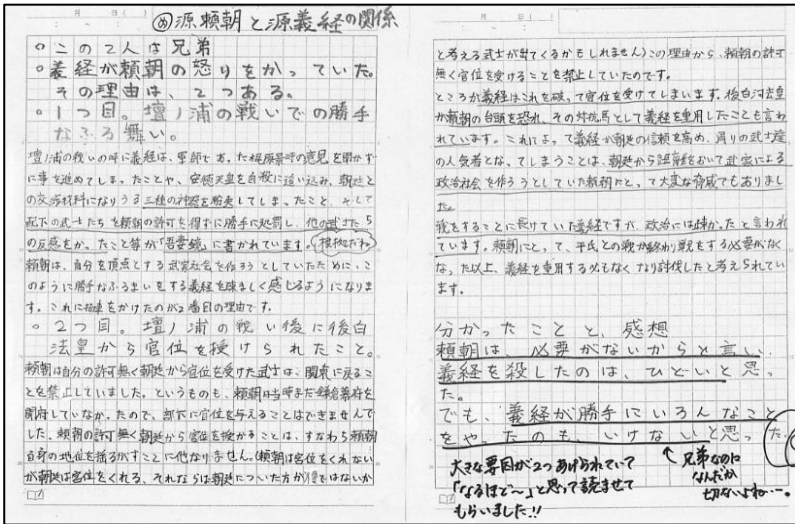 月 日( )
め 源頼朝と源義経の関係
○この2人は兄弟
○義経が頼朝の怒りをかっていた。
その理由は、2つある。
○1つ目。壇ノ浦の戦いでの勝手
なふる舞い。
壇ノ浦の戦いの時に義経は、軍師であった梶原景時の意見を聞かず
に事を進めてしまったことや、安徳天皇を自殺に追い込み、朝廷と
の交渉材料になりうる三種の神器を紛失してしまったこと、そして
配下の武士たちを頼朝の許可を得ずに勝手に処罰し、他の武士たち
の反感をかったこと等が「吾妻鏡」に書かれています。
頼朝は、自分を頂点とする武家社会を作ろうとしていたために、こ
のように勝手なふるまいをする義経を疎ましく感じるようになりま
す。これに拍車をかけたのが2番目の理由です。
○2つ目。壇ノ浦の戦い後に後白
法皇から官位を授けられたこと。
頼朝は自分の許可無く朝廷から官位を受けた武士は、関東に戻るこ
とを禁止していました。というものも、頼朝は当時まだ鎌倉幕府を
開府していなかったので、部下に官位を与えることはできませんで
した。頼朝の許可無く朝廷から官位を授かることは、すなわち頼朝
自身の地位を揺るがすことに他なりません。(頼朝は官位をくれない
が朝廷は官位をくれる、それならば朝廷についた方が得ではないか
月 日( )
と考える武士が出てくるかもしれません)この理由から、頼朝の許可
無く官位を受けることを禁止していたのです。
ところが義経はこれを破って官位を受けてしまいます。後白河法皇
が頼朝の台頭を恐れ、その対抗馬として義経を重用したことも言わ
れています。これによって義経が朝廷の信頼を高め、周りの武士達
の人気者となってしまうことは、朝廷から距離をおいて武家による
政治社会を作ろうとしていた頼朝にとって大変な脅威でもありまし
た。
戦をすることに長けていた義経ですが、政治には疎かったと言われ
ています。頼朝にとって、平氏との戦が終わり戦をする必要がなく
なった以上、義経を重用する必もなくなり討伐したと考えられてい
ます。
分かったことと、感想
頼朝は、必要がないからと言い、
義経を殺したのは、ひどいと思っ
た。
でも、義経が勝手にいろんなこと
をやったのも、いけないと思った。
大きな要因が2つあげられていて
「なるほど〜」と思って読ませて
もらいました!!
↑兄弟なのに
なんだか
切ないよね…。